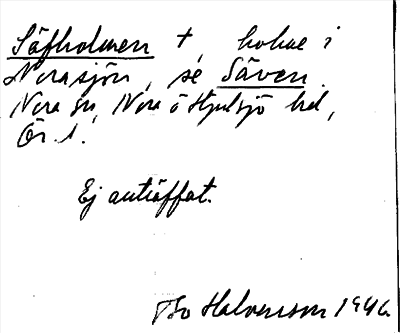 Säfholmen †, holme i
Norasjön, se Säven.
Nora sn, Nora o Hjulsjö hd,
Ör. l.
Ej anträffat.
Bo Halvarsson 1946